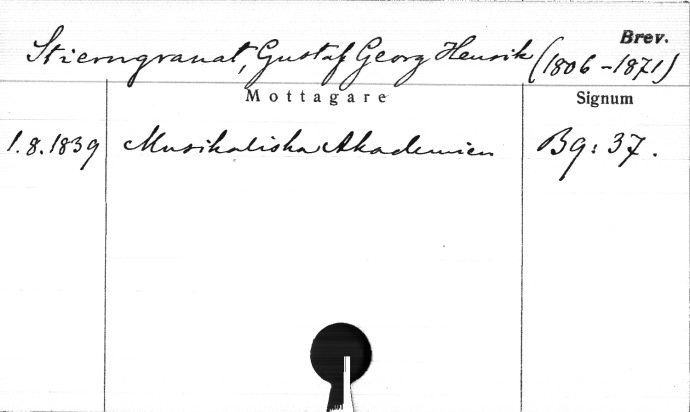 Brev.
Stierngranat, Gustaf Georg Henrik (1806-1871)
Mottagare Signum
1.8.1839 Musikaliska Akademien Bg: 37.